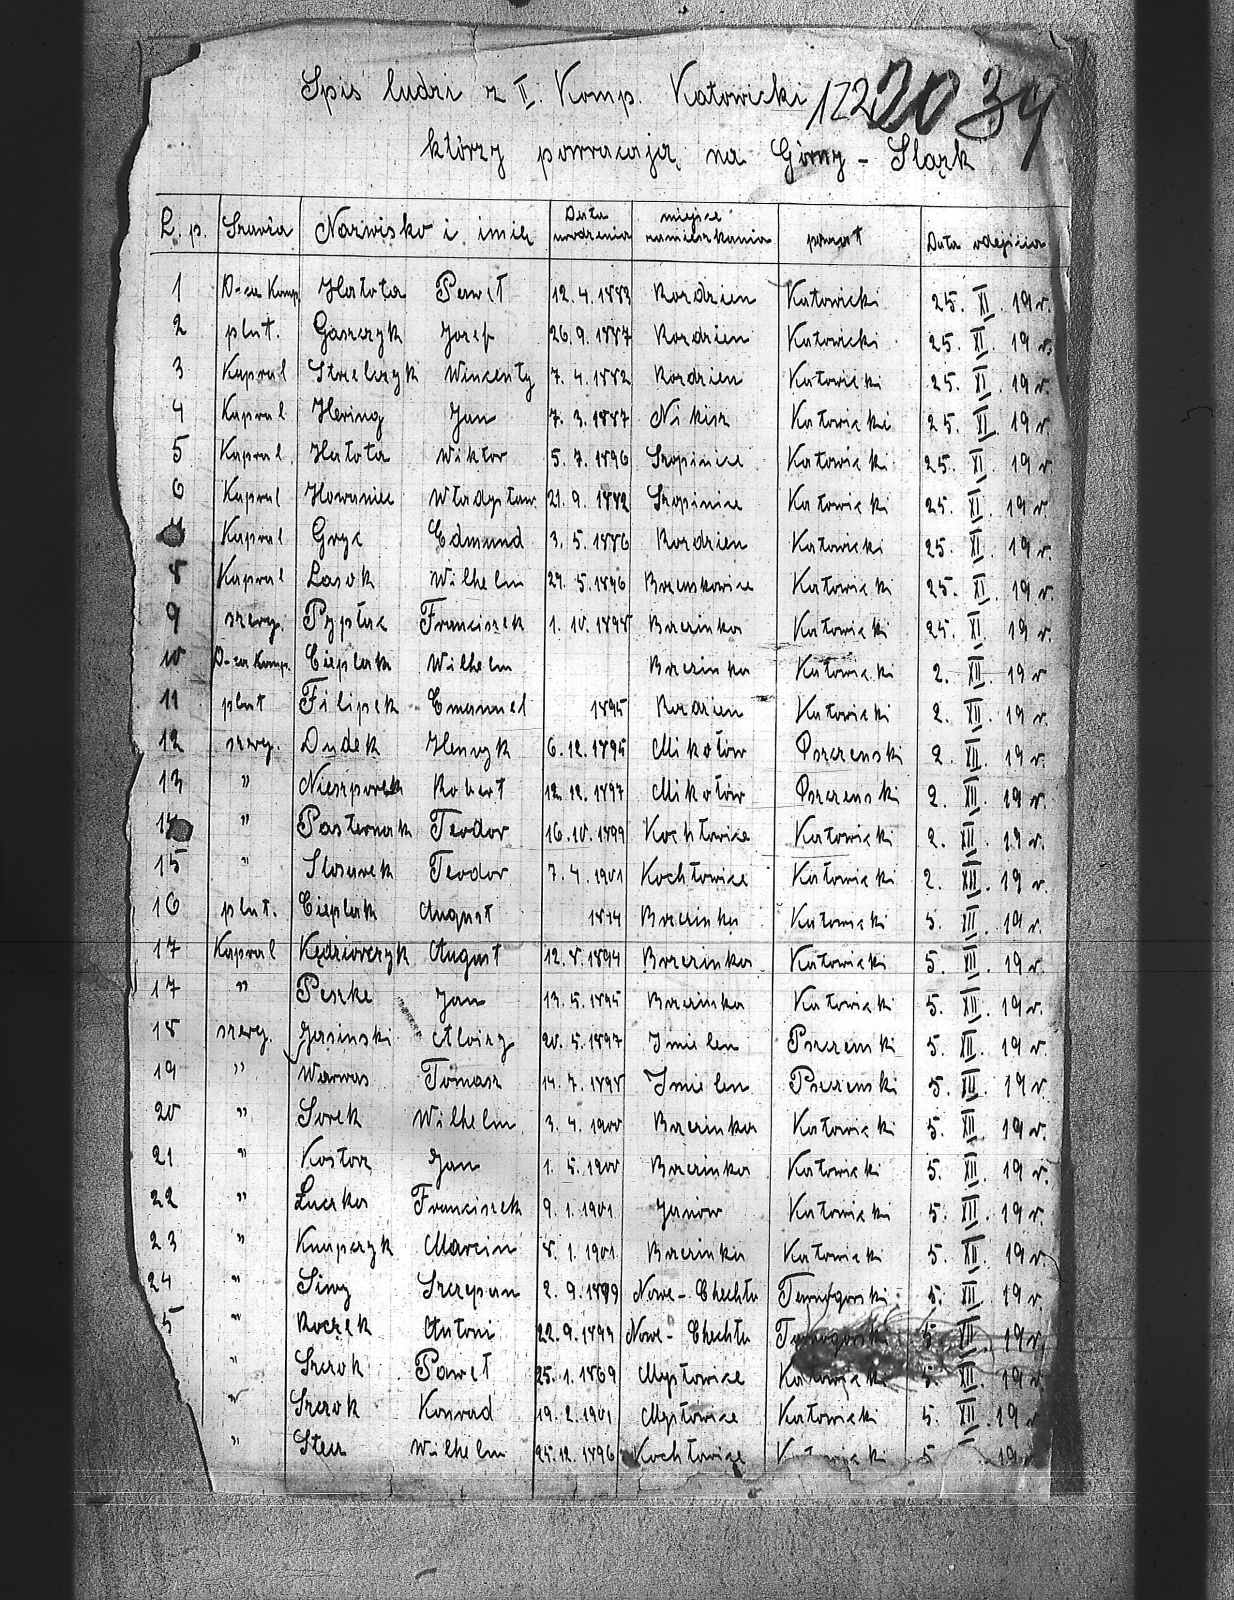 Spis ludzi z II. Komp. Katowicki 122 20 34
którzy powracają na Górny - Slązk
L. p. Szarża Nazwisko i imię Data urodzenia miejsce zamieszkania powiat Data odejścia
1 D-ca Komp. Hałota Paweł 12. 4. 1883 Rozdzien Katowicki 25. XI. 19 r.
2 plut. Gaszczyk Jozef 26. 9. 1887 Rozdzien Katowicki 25. XI. 19 r.
3 Kapral Strzelczyk Wincenty 7. 4. 1882 Rozdzien Katowicki 25. XI. 19 r.
4 Kapral Hering Jan 7. 3. 1887 Nikisz Katowicki 25. XI. 19 r.
5 Kapral Hałota Wiktor 5. 7. 1896 Szopinice Katowicki 25. XI. 19 r.
6 Kapral Howaniec Władysław 21. 9. 1882 Szopinice Katowicki 25. XI. 19 r.
Kapral Gryc Edmund 3. 5. 1886 Rozdzien Katowicki 25. XI. 19 r.
8 Kapral Lasok Wilhelm 27. 5. 1896 Brzenskowice Katowicki 25. XI. 19 r.
9 szereg. Pypłac Franciszek 1. 10. 1898 Brzezinka Katowicki 25. XI. 19 r.
10 D-ca Komp. Cieplak Wilhelm Brzezinka Katowicki 2. XII. 19 r
11 plut Filipek Emanuel 1895 Rozdzien Katowicki 2. XII. 19 r.
12 szereg. Dudek Henryk 6. 12. 1895 Mikołów Pszczenski 2. XII. 19 r.
13 " Nieszporek Robert 12. 12. 1897 Mikołów Pszczenski 2. XII. 19 r.
14 " Pasternak Teodor 16. 10. 1899 Kochłowice Katowicki 2. XII. 19 r.
15 " Slosarek Teodor 7. 4. 1901 Kochłowice Katowicki 2. XII. 19 r.
16 plut. Cieplak August 1874 Brzezinka Katowicki 5. XII. 19 r.
17 Kapral Kędziorczyk August 12. 8. 1894 Brzezinka Katowicki 5. XII. 19 r.
17 " Peszke Jan 13. 5. 1895 Brzezinka Katowicki 5. XII. 19 r.
18 szereg. Jasinski Alojzy 20. 5. 1897 Imielen Pszczenski 5. XII. 19 r.
19 " Warwas Tomasz 14. 7. 1898 Imielen Pszczenski 5. XII. 19 r.
20 " Sorek Wilhelm 3. 4. 1900 Brzezinka Katowicki 5. XII. 19 r.
21 " Kostorz Jan 1. 5. 1900 Brzezinka Katowicki 5. XII. 19 r.
22 " Łuczka Franciszek 9. 1. 1901 Janów Katowicki 5. XII. 19 r.
23 " Knapczyk Marcin 8. 1. 1901 Brzezinka Katowicki 5. XII. 19 r.
24 " Siwy Szczepan 2. 9. 1899 Nowe - Chechło Tarnogorski 5. XII. 19 r.
5 " Roczek Antoni 22. 9. 1894 Nowe - Chechło Tarnogorski 5. XII. 19 r.
" Szczok Paweł 25. 1. 1869 Mysłowice Katowicki 5. XII. 19 r.
" Szczok Konrad 19. 2. 1901 Mysłowice Katowicki 5. XII. 19 r
" Wilhelm 25. 12. 1896 Kochłowice Katowicki 5 19